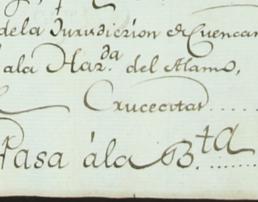 dela Jurisdicion de Cuencam
ala Haz.da del Alamo,
Crucecitas.....
Pasa ála B.ta ......